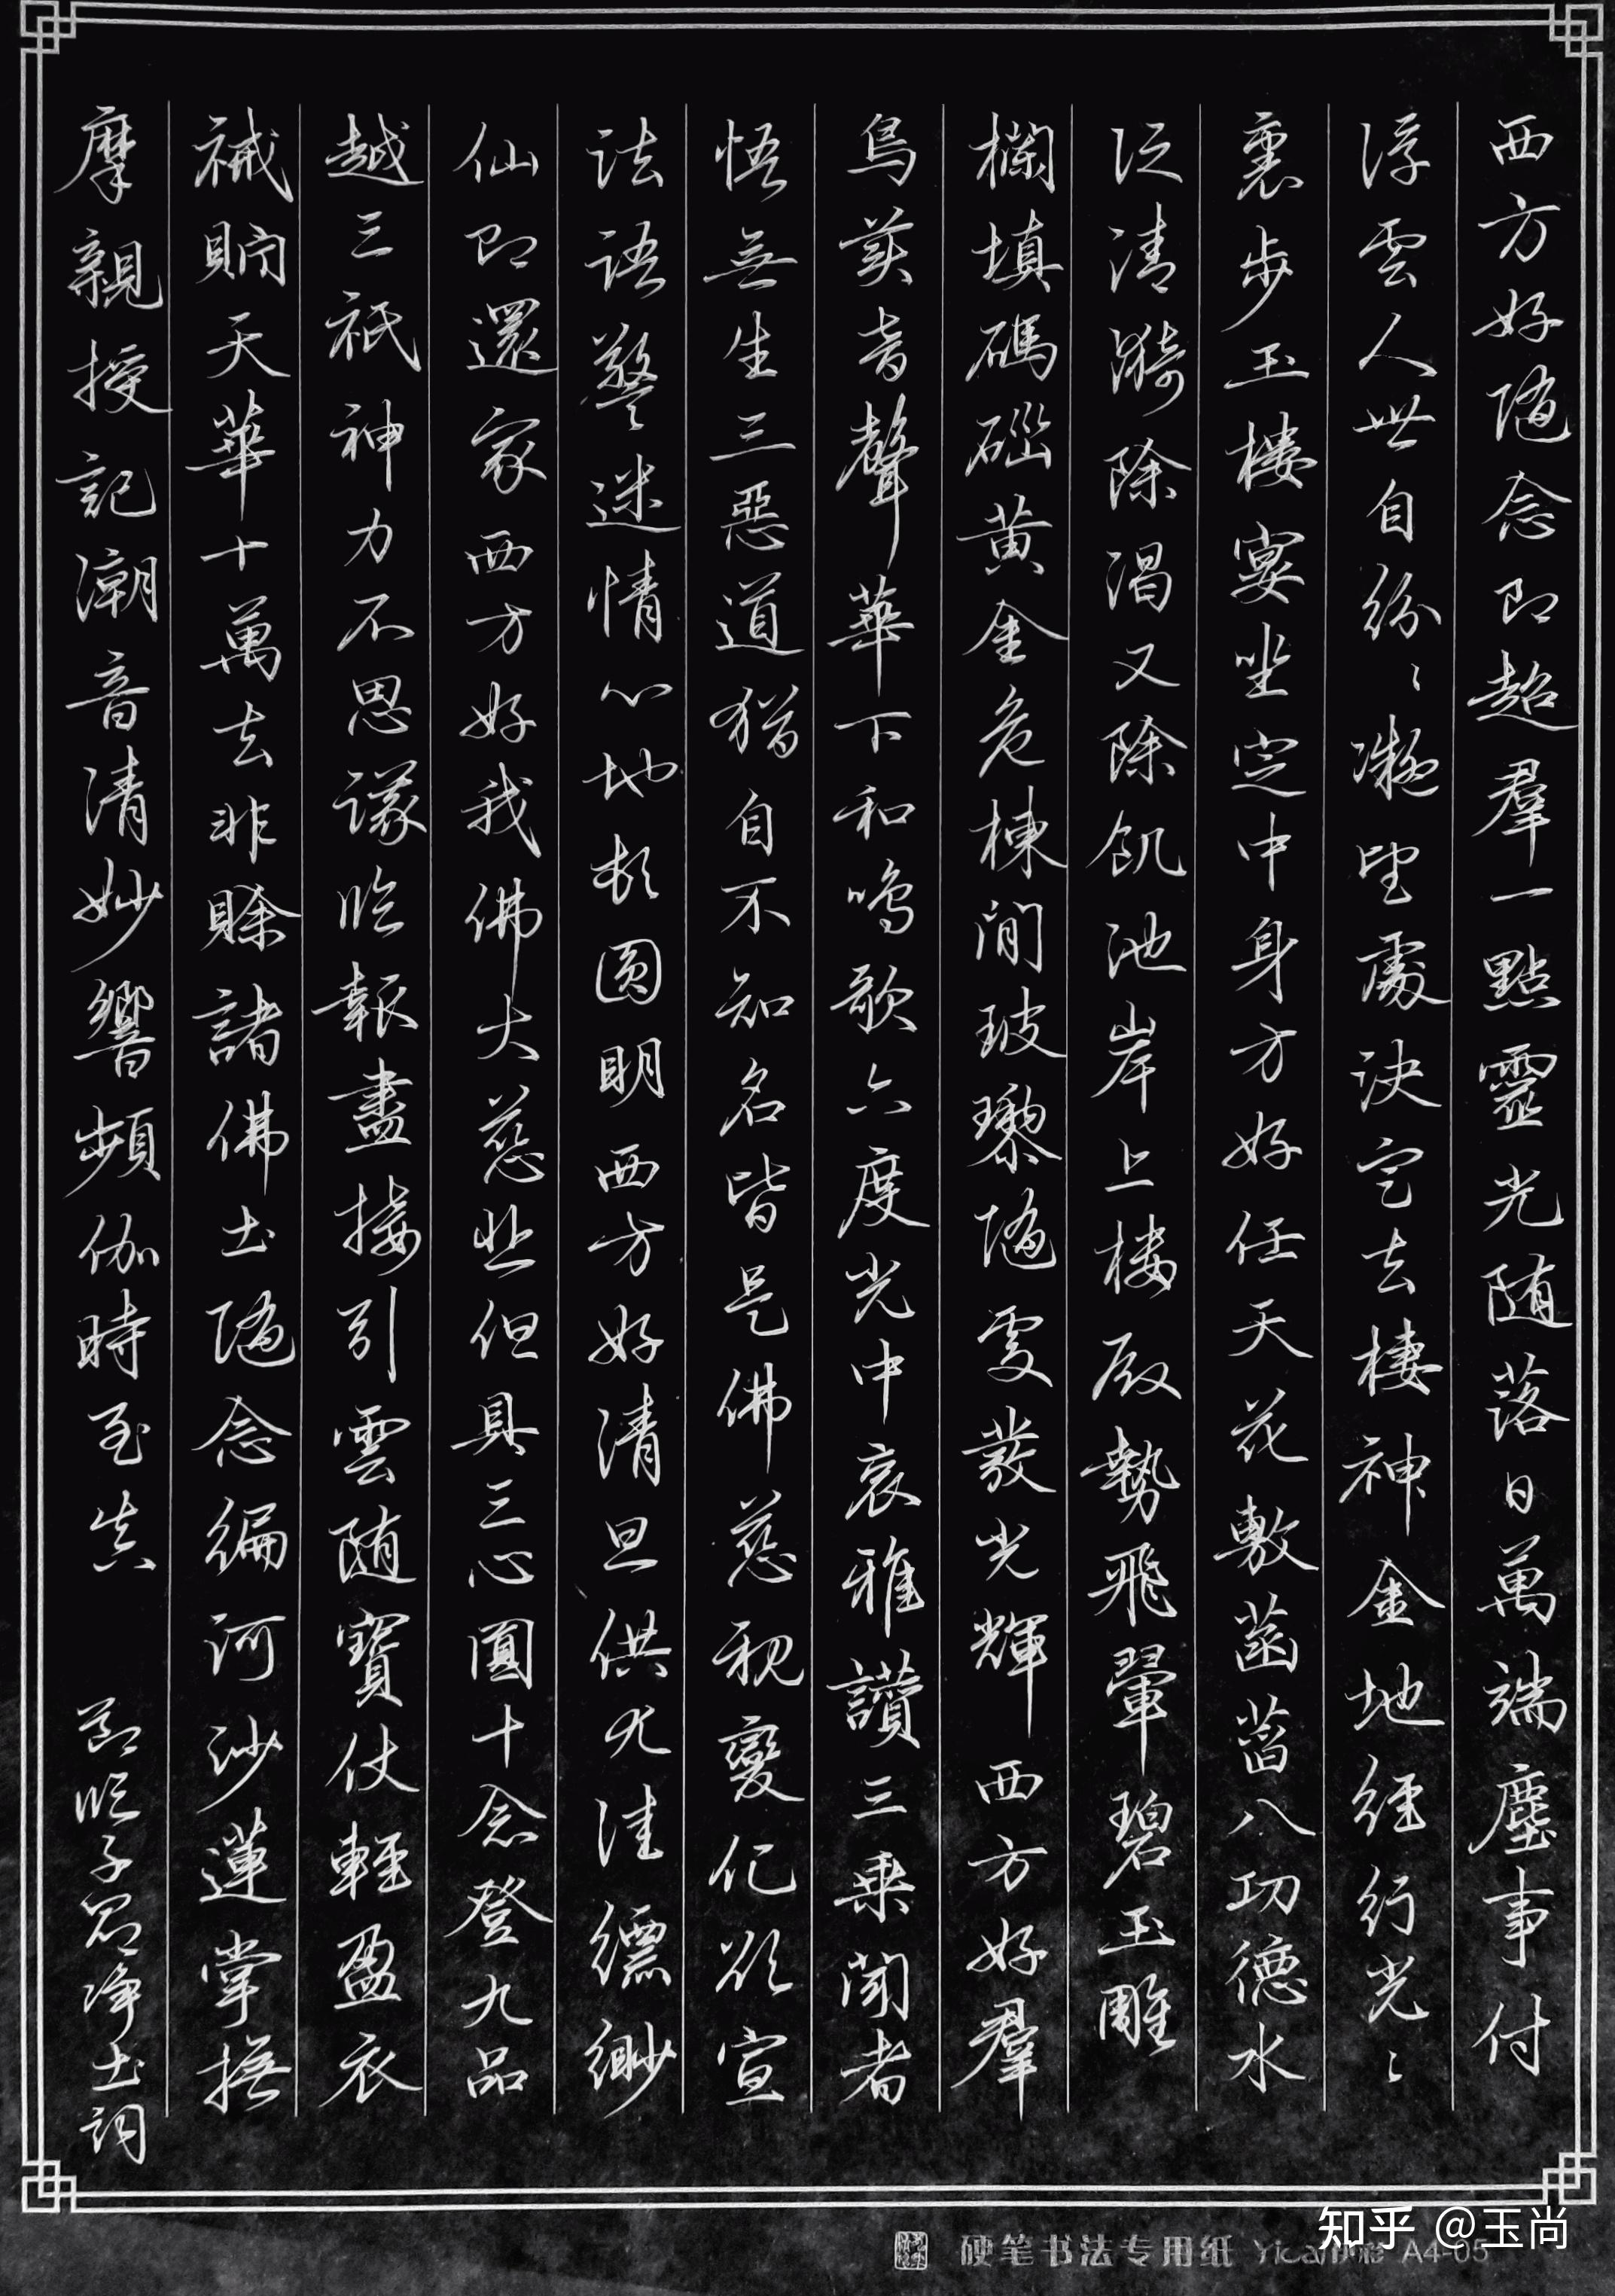 西方好随念即超羣一點靈光随落日萬端塵事付
浮雲人世自紛〻凝望處決定去棲神金地經行光〻
裏步玉樓宴坐定中身方好任天花敷菡萏八功德水
泛清漪除渴又除飢池岸上樓殿勢飛翬碧玉雕
欄填碼碯黄金危棟間玻瓈随處發光輝西方好羣
鳥美音聲華下和鳴歌六度光中哀雅讚三乗聞者
悟無生三惡道猶自不知名皆是佛慈親變化欲宣
法語警迷情心地頓圆明西方好清旦供尤佳縹緲
仙即還家西方好我佛大慈悲但具三心圓十念登九品
越三祇神力不思議臨報盡接引雲随寶仗輕盈衣
裓貯天華十萬去非賒諸佛土随念徧河沙蓮掌撫
摩親授記潮音清妙響頻伽時至真
節臨子昂淨土詞
知乎 @玉尚
硬笔书法专用纸 Yicai A4-05